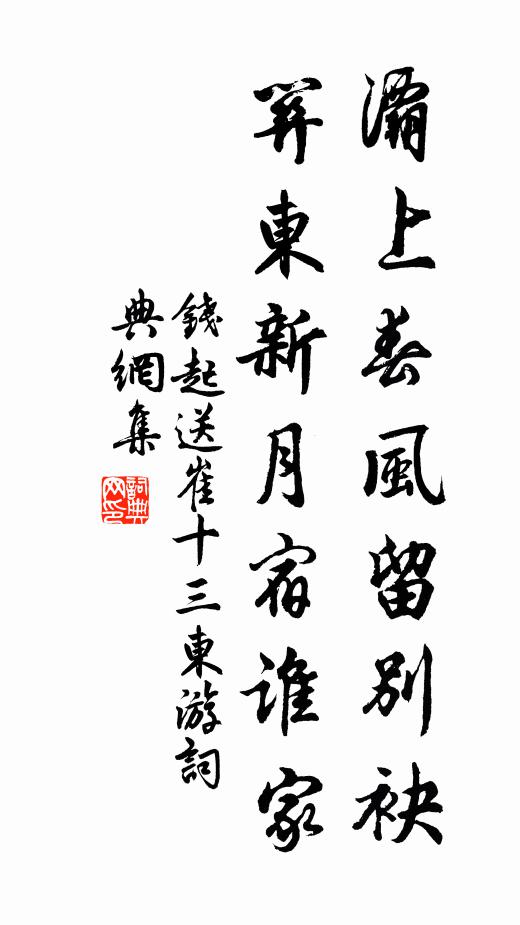 灞上春風留別袂
關東新月宿誰家
錢起送崔十三東游詞
典網集
詞典網印